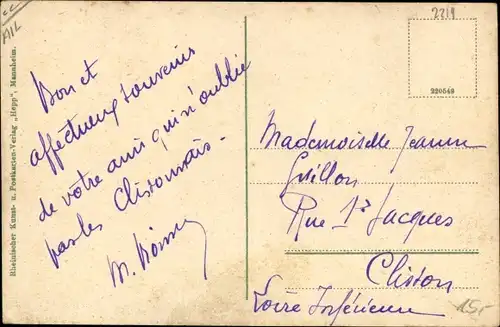 cc
All
2219
Rheinischer Kunst- u. Postkarten-Verlag „Hepp", Mannheim.
220549
Bon et
affectueux souvenirs
de votre ami qui n'oublie
pas les Clissonnais.
M.
Mademoiselle Jeanne
Guillon
Rue St Jacques
Clisson
Loire Inférieure
15,-